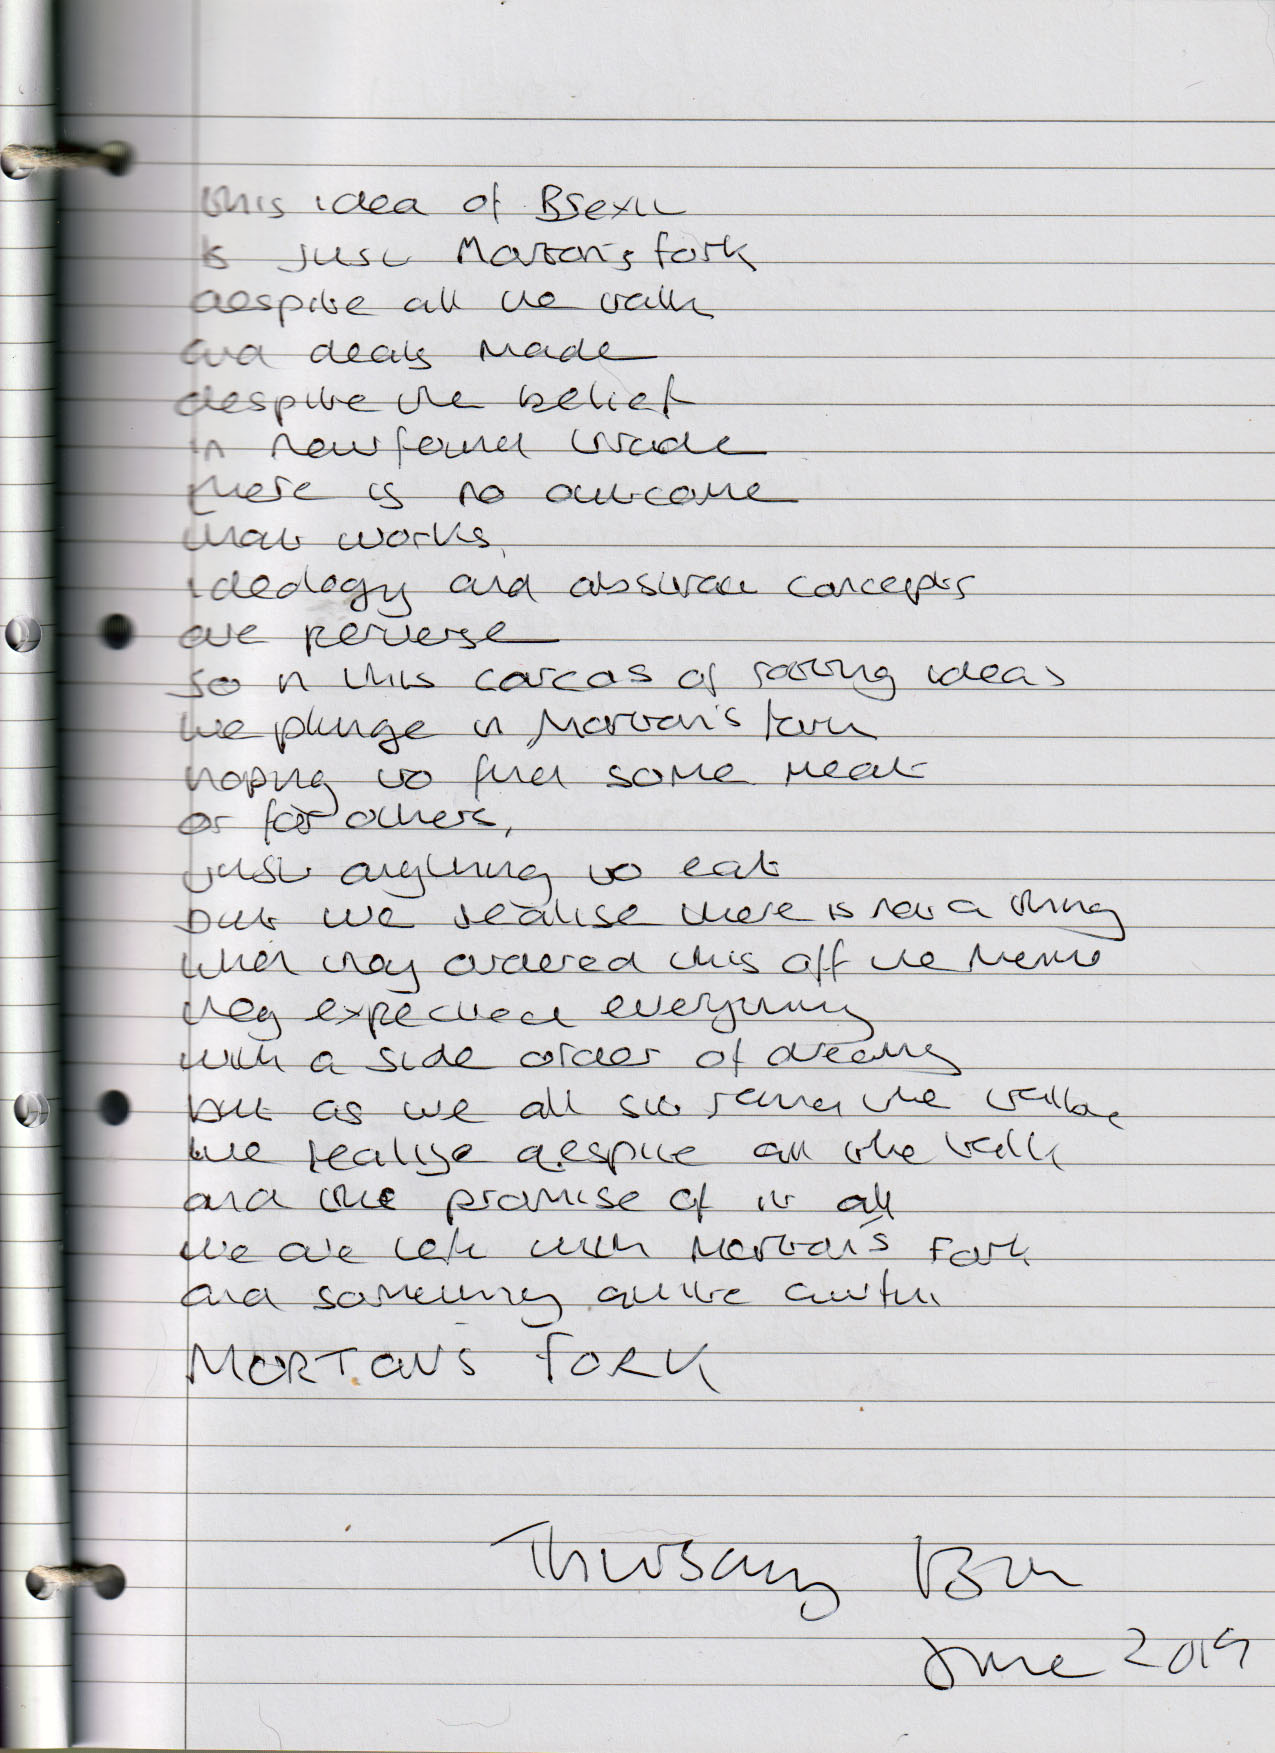 this idea of Brexit
is just Morton's fork
despite all the talk
and deals made
despite the belief
in new found trade
there is no outcome
that works,
ideology and abstract concepts
are perverse
so in this carcas of rotting ideas
we plunge in Morton's fork
hoping to find some meat
or for others,
just anything to eat
but we realise there is not a thing
when they ordered this off the menu
they expected everything
with a side order of dreams
but as we all sit round the table
we realise despite all the talk
and the promise of it all
we are left with Morton's Fork
and something quite awful
MORTONS FORK
Thursday 13th
June 2019